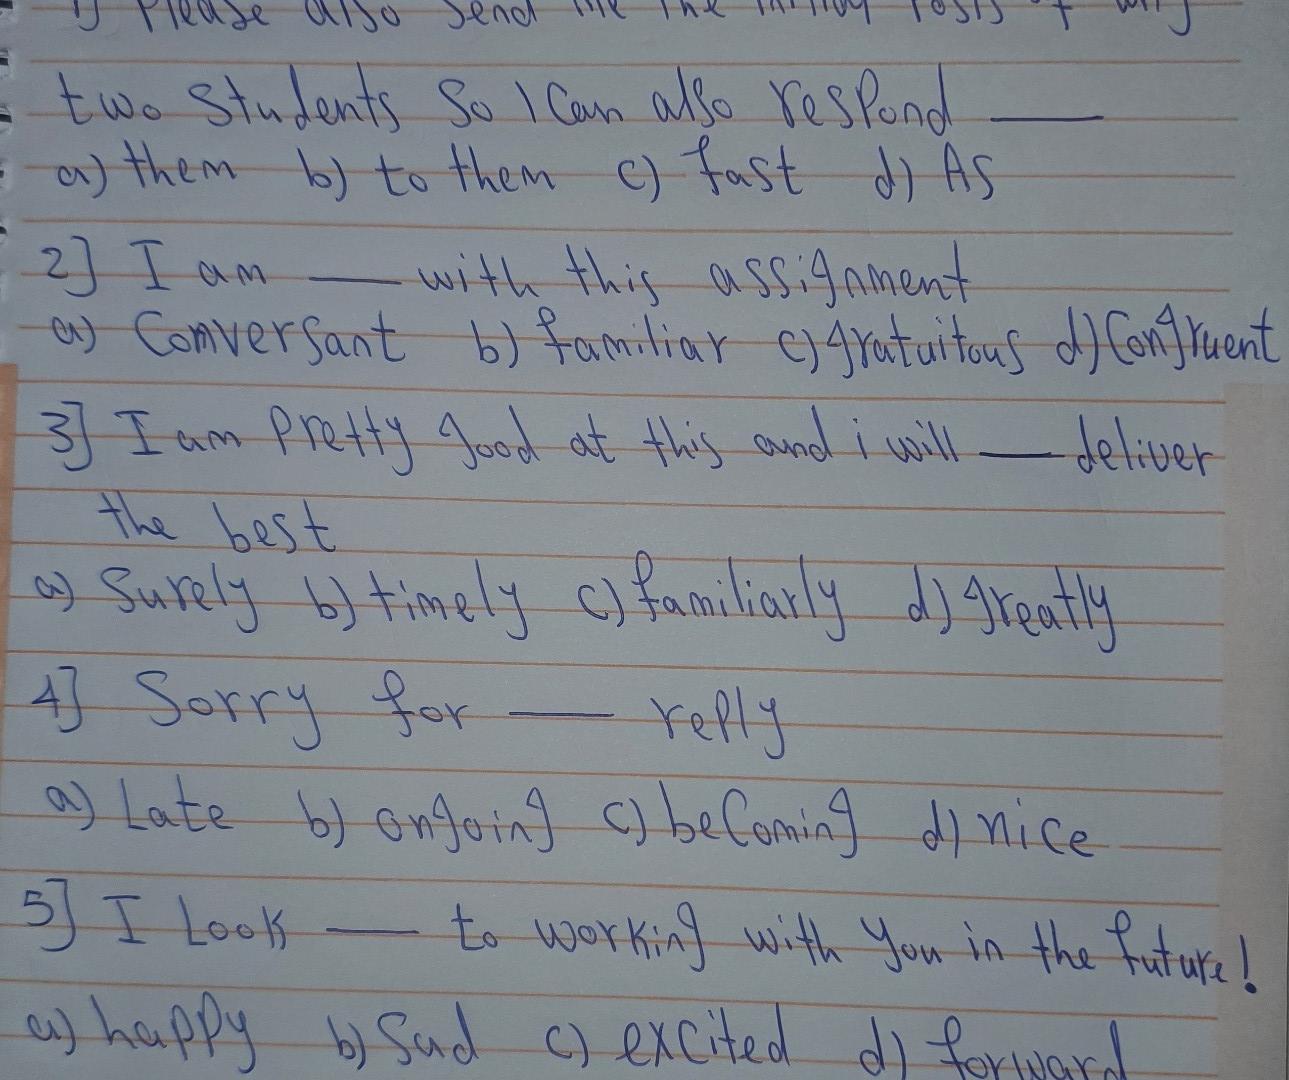 1) Please also send me the initial Posts of any
two students So I Can also resPond ___
a) them b) to them c) fast d) As
2] I am ___ with this assignment
a) Conversant b) familiar c) gratuitous d) Congruent
3] I am Pretty good at this and i will ___ deliver
the best
a) Surely b) timely c) familiarly d) greatly
4] Sorry for ___ rePly
a) Late b) ongoing c) beComing d) nice
5] I Look ___ to working with you in the future!
a) happy b) Sad c) excited d) forward